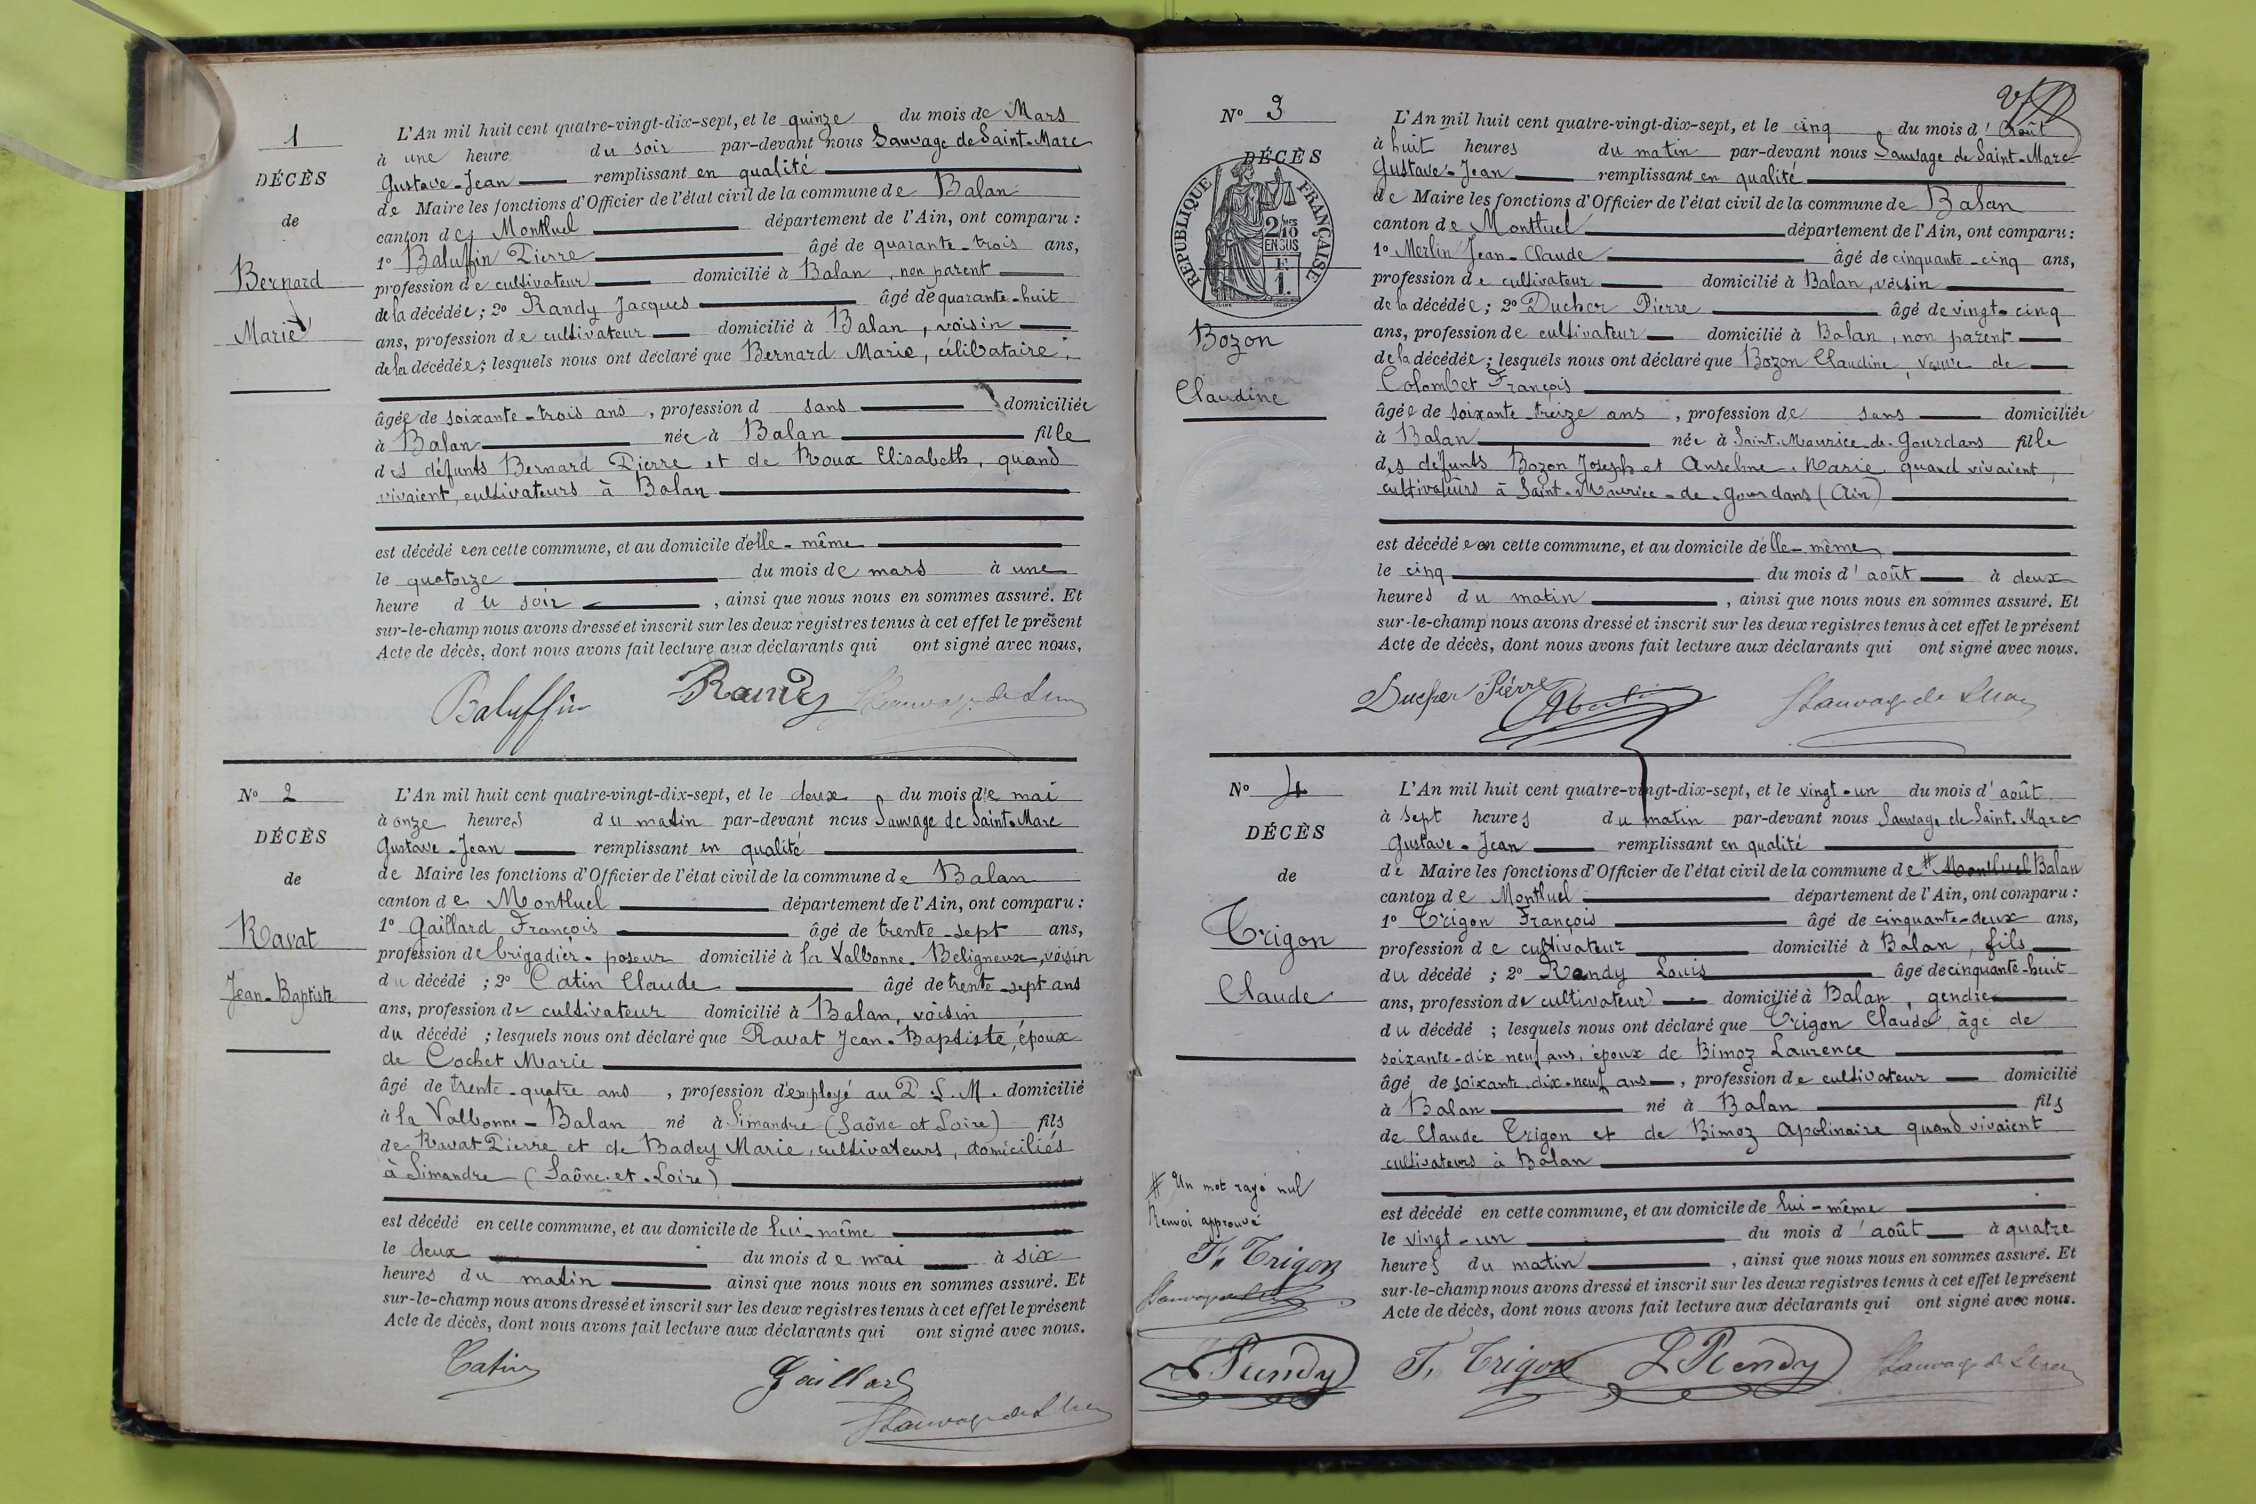 1
DÉCÈS
de
Bernard
Marie
L'An mil huit cent quatre-vingt-dix-sept, et le quinze du mois de Mars
à une heure du soir par-devant nous Sauvage de Saint-Marc
Gustave-Jean remplissant en qualité
de Maire les fonctions d'Officier de l'état civil de la commune de Balan
canton de Montluel département de l'Ain, ont comparu :
1º Baluffin Pierre âgé de quarante-trois ans,
profession de cultivateur domicilié à Balan, non parent
de la décédée ; 2º Randy Jacques âgé de quarante-huit
ans, profession de cultivateur domicilié à Balan, voisin
de la décédée ; lesquels nous ont déclaré que Bernard Marie, célibataire,
âgée de soixante-trois ans, profession d sans domiciliée
à Balan née à Balan fille
des défunts Bernard Pierre et de Roux Elisabeth, quand
vivaient, cultivateurs à Balan
est décédée en cette commune, et au domicile d'elle-même
le quatorze du mois de mars à une
heure du soir, ainsi que nous nous en sommes assuré. Et
sur-le-champ nous avons dressé et inscrit sur les deux registres tenus à cet effet le présent
Acte de décès, dont nous avons fait lecture aux déclarants qui ont signé avec nous.
Baluffin Randy Sauvage de St Marc
Nº 2
DÉCÈS
de
Ravat
Jean-Baptiste
L'An mil huit cent quatre-vingt-dix-sept, et le deux du mois de mai
à onze heures du matin par-devant nous Sauvage de Saint-Marc
Gustave-Jean remplissant en qualité
de Maire les fonctions d'Officier de l'état civil de la commune de Balan
canton de Montluel département de l'Ain, ont comparu :
1º Gaillard François âgé de trente-sept ans,
profession de brigadier-poseur domicilié à la Valbonne-Beligneux, voisin
du décédé ; 2º Catin Claude âgé de trente-sept ans
ans, profession de cultivateur domicilié à Balan, voisin
du décédé ; lesquels nous ont déclaré que Ravat Jean-Baptiste, époux
de Cochet Marie
âgé de trente-quatre ans, profession d'employé au P.L.M. domicilié
à la Valbonne-Balan né à Simandre (Saône et Loire) fils
de Ravat Pierre et de Badey Marie, cultivateurs, domiciliés
à Simandre (Saône-et-Loire)
est décédé en cette commune, et au domicile de lui-même
le deux du mois de mai à six
heures du matin ainsi que nous nous en sommes assuré. Et
sur-le-champ nous avons dressé et inscrit sur les deux registres tenus à cet effet le présent
Acte de décès, dont nous avons fait lecture aux déclarants qui ont signé avec nous.
Catin Gaillard
Sauvage de St Marc
Nº 3
DÉCÈS
RÉPUBLIQUE FRANÇAISE
2/10
EN SUS
1.
Bozon
Claudine
L'An mil huit cent quatre-vingt-dix-sept, et le cinq du mois d'Août
à huit heures du matin par-devant nous Sauvage de Saint-Marc
Gustave-Jean remplissant en qualité
de Maire les fonctions d'Officier de l'état civil de la commune de Balan
canton de Montluel département de l'Ain, ont comparu :
1º Merlin Jean-Claude âgé de cinquante-cinq ans,
profession de cultivateur domicilié à Balan, voisin
de la décédée ; 2º Ducher Pierre âgé de vingt-cinq
ans, profession de cultivateur domicilié à Balan, non parent
de la décédée ; lesquels nous ont déclaré que Bozon Claudine, veuve de
Colombet François
âgée de soixante-treize ans, profession de sans domiciliée
à Balan née à Saint-Maurice-de-Gourdans fille
des défunts Bozon Joseph et Anselme Marie quand vivaient,
cultivateurs à Saint-Maurice-de-Gourdans (Ain)
est décédée en cette commune, et au domicile d'elle-même
le cinq du mois d'août à deux
heures du matin, ainsi que nous nous en sommes assuré. Et
sur-le-champ nous avons dressé et inscrit sur les deux registres tenus à cet effet le présent
Acte de décès, dont nous avons fait lecture aux déclarants qui ont signé avec nous.
Ducher Pierre Sauvage de St Marc
Nº 4
DÉCÈS
de
Trigon
Claude
L'An mil huit cent quatre-vingt-dix-sept, et le vingt-un du mois d'août
à sept heures du matin par-devant nous Sauvage de Saint-Marc
Gustave-Jean remplissant en qualité
de Maire les fonctions d'Officier de l'état civil de la commune de # Montluel Balan
canton de Montluel département de l'Ain, ont comparu :
1º Trigon François âgé de cinquante-deux ans,
profession de cultivateur domicilié à Balan, fils
du décédé ; 2º Randy Louis âgé de cinquante-huit
ans, profession de cultivateur domicilié à Balan, gendre
du décédé ; lesquels nous ont déclaré que Trigon Claude, âgé de
soixante-dix neuf ans, époux de Bimoz Laurence
âgé de soixante-dix-neuf ans, profession de cultivateur domicilié
à Balan né à Balan fils
de Claude Trigon et de Bimoz Apolinaire quand vivaient
cultivateurs à Balan
est décédé en cette commune, et au domicile de lui-même
le vingt-un du mois d'août à quatre
heures du matin, ainsi que nous nous en sommes assuré. Et
sur-le-champ nous avons dressé et inscrit sur les deux registres tenus à cet effet le présent
Acte de décès, dont nous avons fait lecture aux déclarants qui ont signé avec nous.
# Un mot rayé nul
Renvoi approuvé
F. Trigon
Sauvage de St Marc
L Rendy
F. Trigon L Rendy Sauvage de St Marc